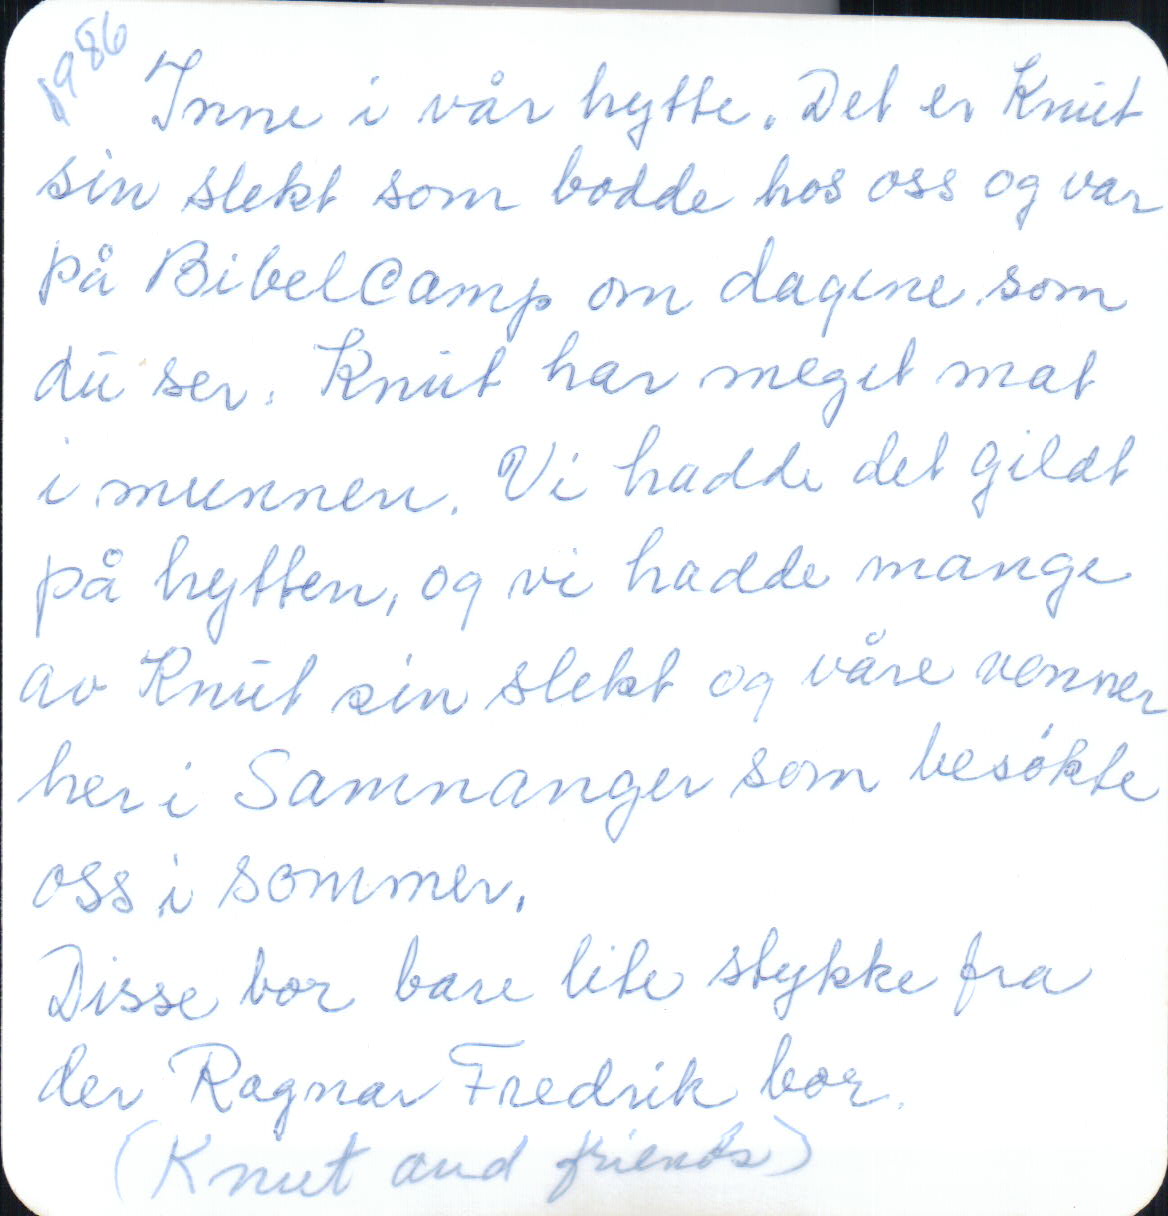 1986
Inne i vår hytte. Det er Knut
sin slekt som bodde hos oss og var
på BibelCamp om dagene som
du ser. Knut har meget mat
i munnen. Vi hadde det gildt
på hytten, og vi hadde mange
av Knut sin slekt og våre venner
her i Samnanger som besøkte
oss i sommer.
Disse bor bare lite stykke fra
der Ragnar Fredrik bor.
(Knut and friends)